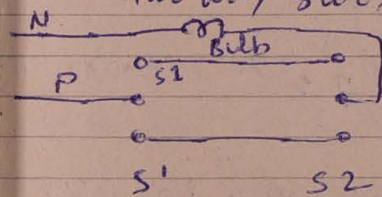 N
Bulb
S1
P
S' S2